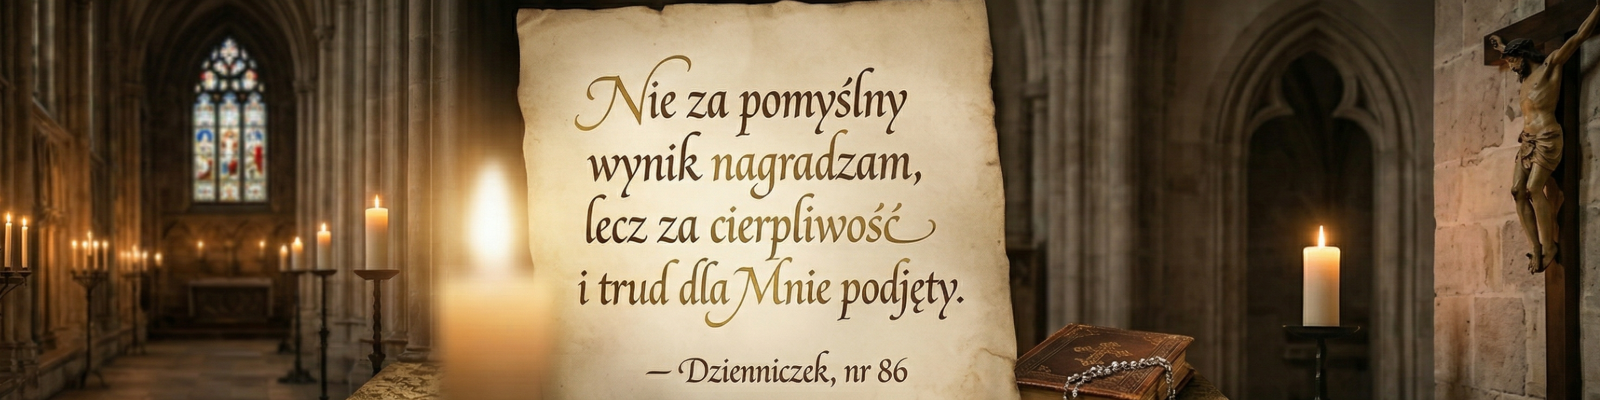 Nie za pomyślny
wynik nagradzam,
lecz za cierpliwość
i trud dla Mnie podjęty.
– Dzienniczek, nr 86